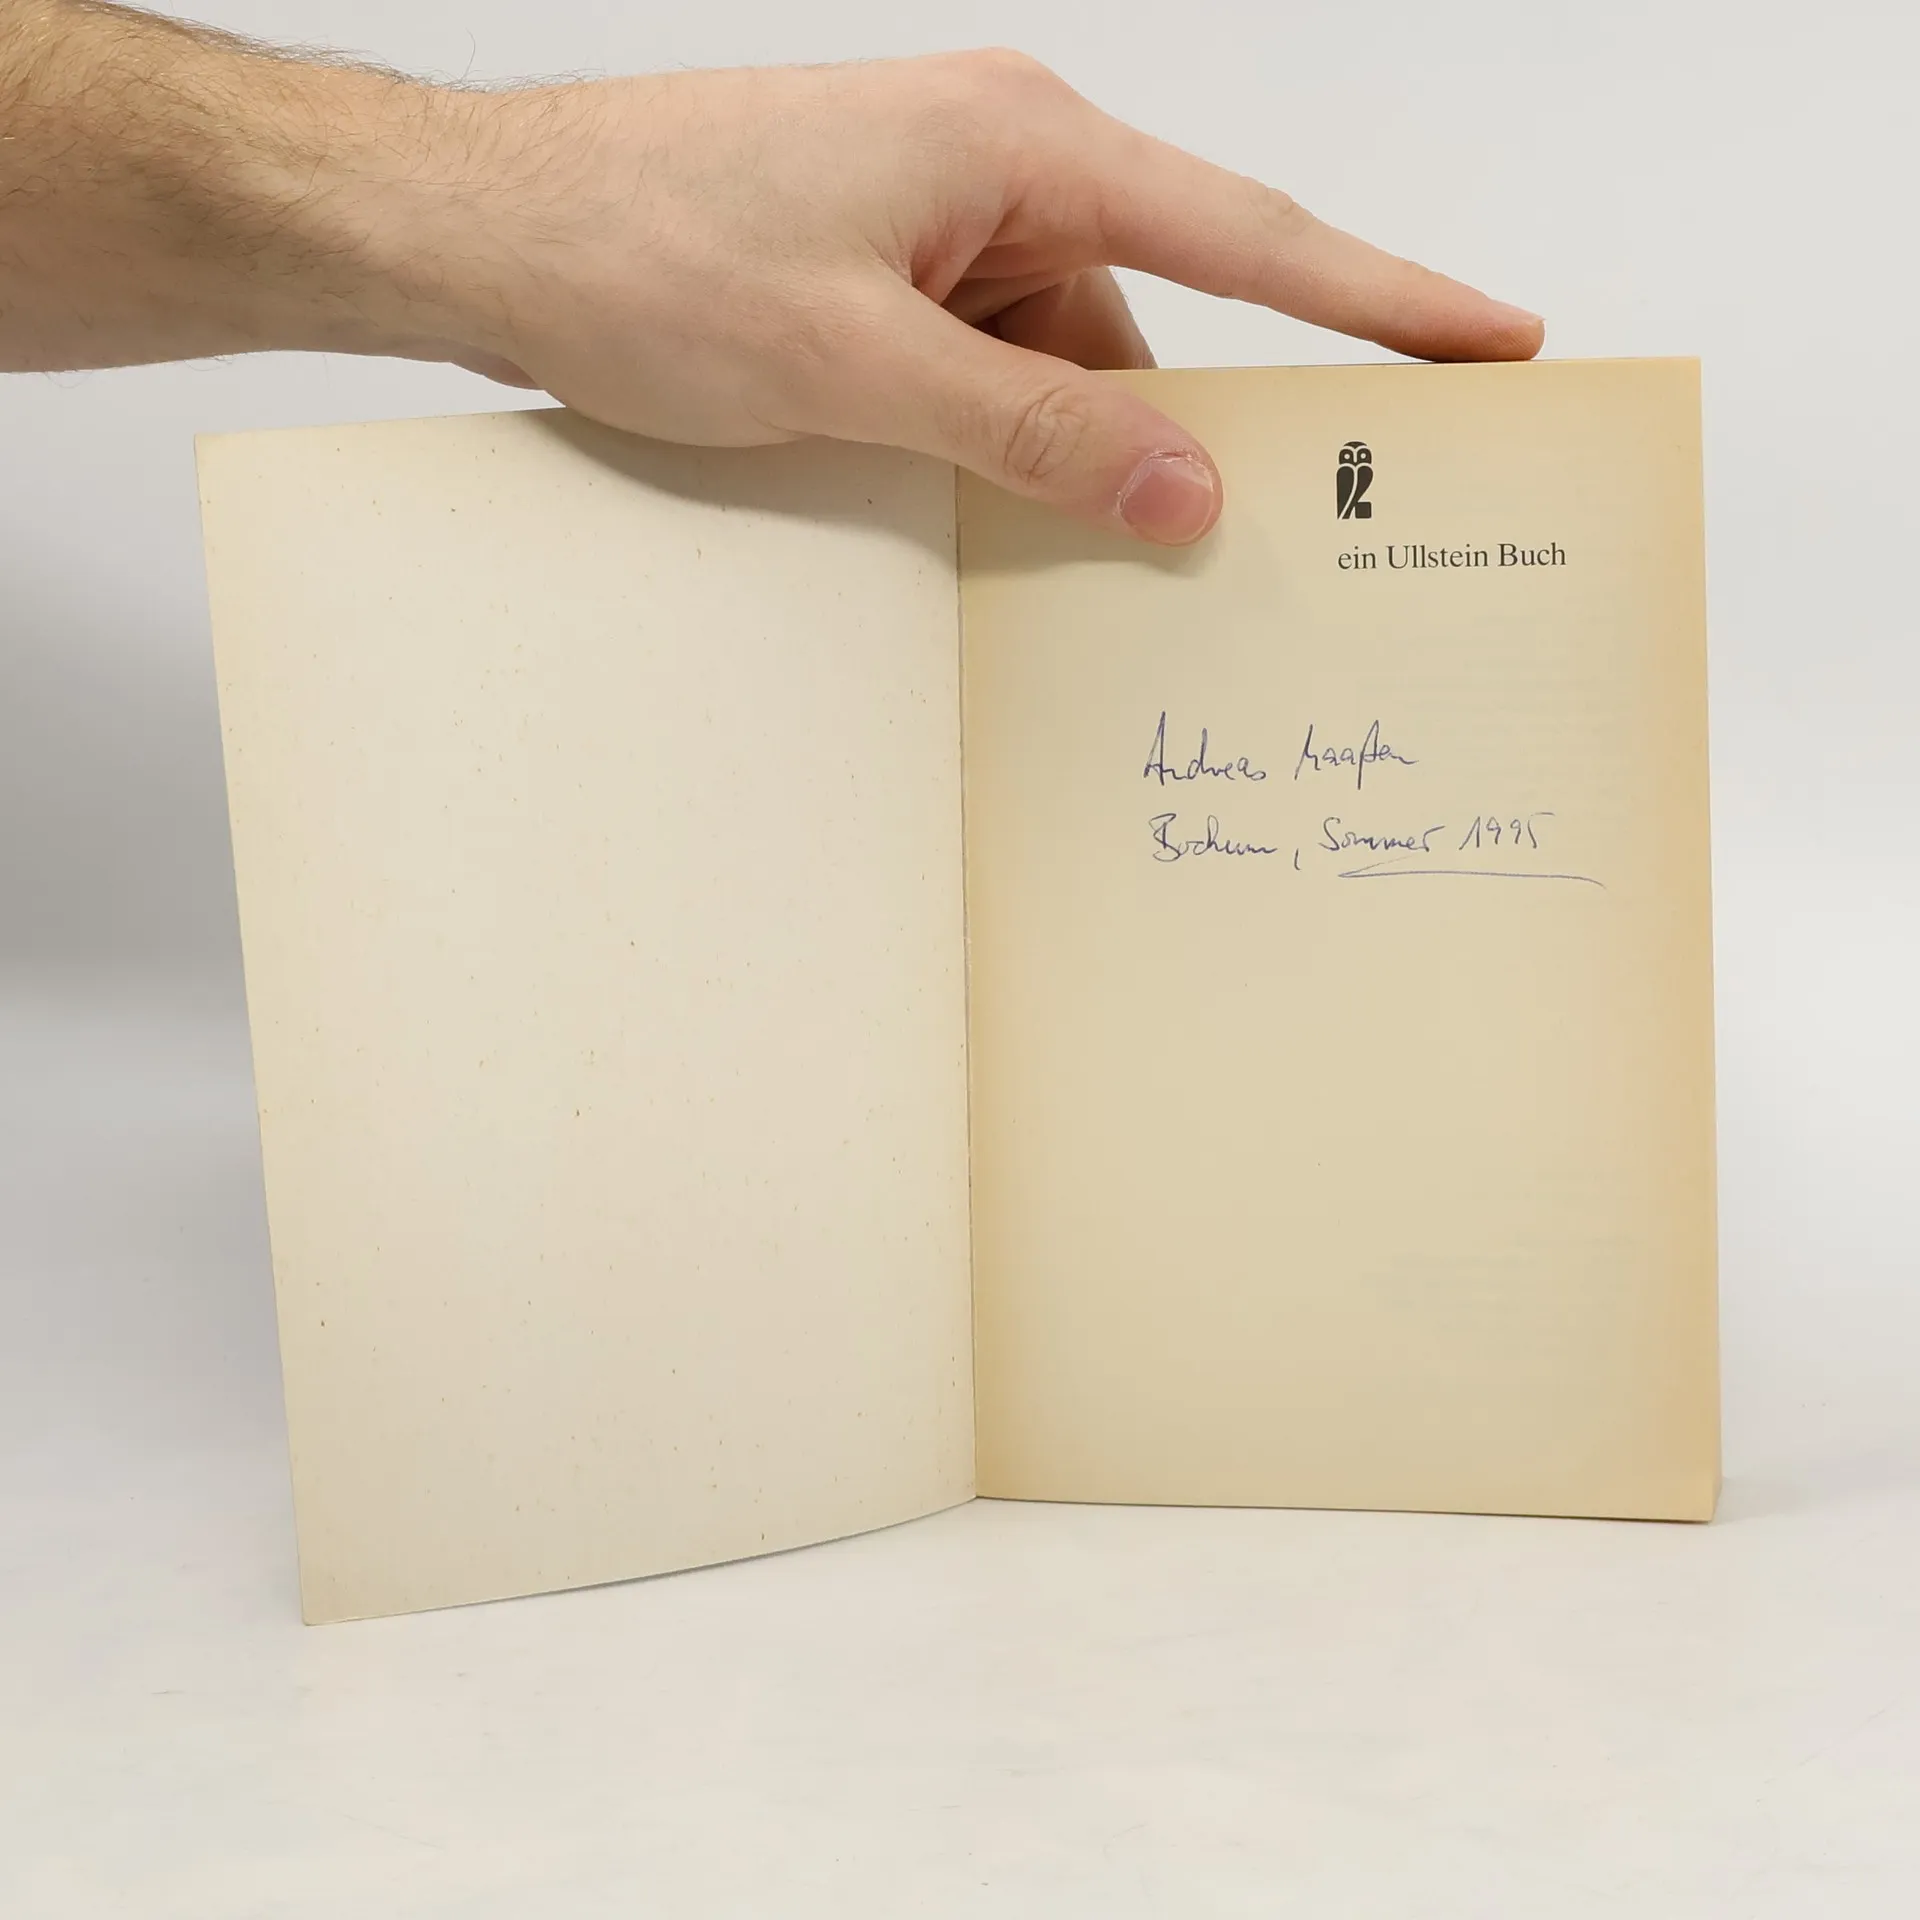 ein Ullstein Buch
Andreas Maaßen
Bochum, Sommer 1995